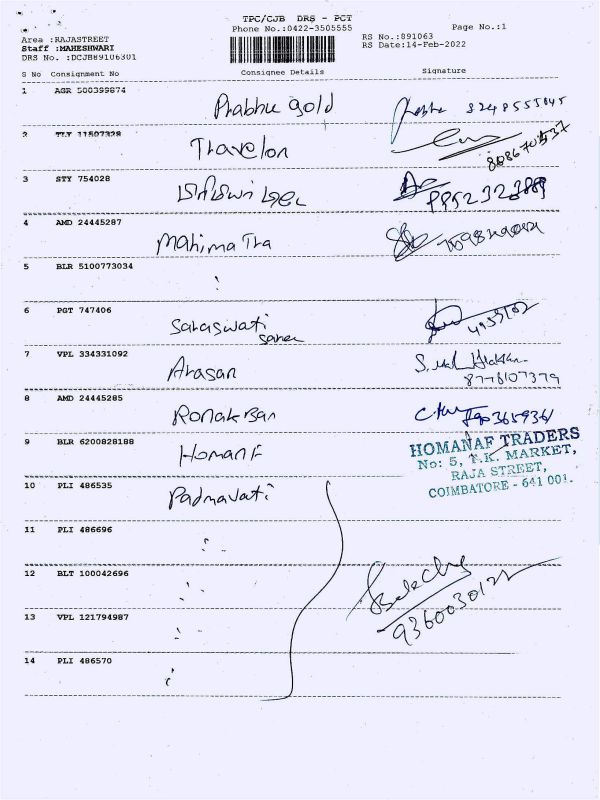 TPC/CJB DRS - PCT
Phone No.:0422-3505555
Page No.:1
Area :RAJASTREET
Staff :MAHESHWARI
DRS No. :DCJB89106301
RS No.:891063
RS Date:14-Feb-2022
S No Consignment No Consignee Details Signature
1 AGR 500399874
Prabhu gold
2 TLY 11507328
Travelon
3 STY 754028
4 AMD 24445287
Mahima Tra
5 BLR 5100773034
6 PGT 747406
Saraswati
saree
7 VPL 334331092
Arasan
8776107379
8 AMD 24445285
Ronak Ban
9 BLR 6200828188
Homan F
HOMANAF TRADERS
No: 5, T.K. MARKET,
RAJA STREET,
COIMBATORE - 641 001.
10 PLI 486535
Padmavati
11 PLI 486696
12 BLT 100042696
9360030122
13 VPL 121794987
14 PLI 486570